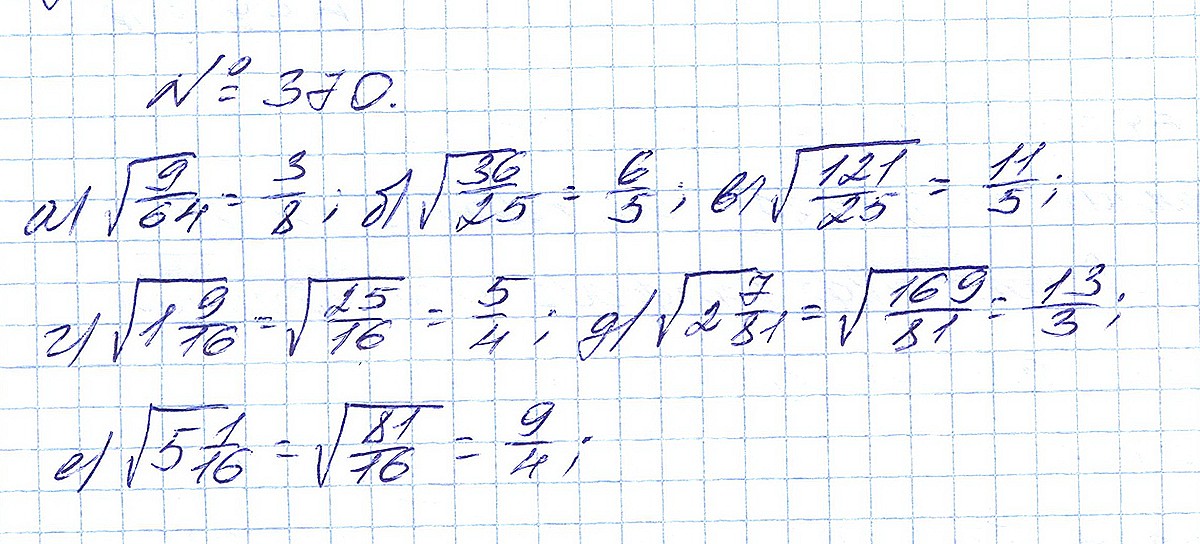 № 370.
а) √(9/64) = 3/8; б) √(36/25) = 6/5; в) √(121/25) = 11/5;
г) √(1 9/16) = √(25/16) = 5/4; д) √(2 7/81) = √(169/81) = 13/3;
е) √(5 1/16) = √(81/16) = 9/4;